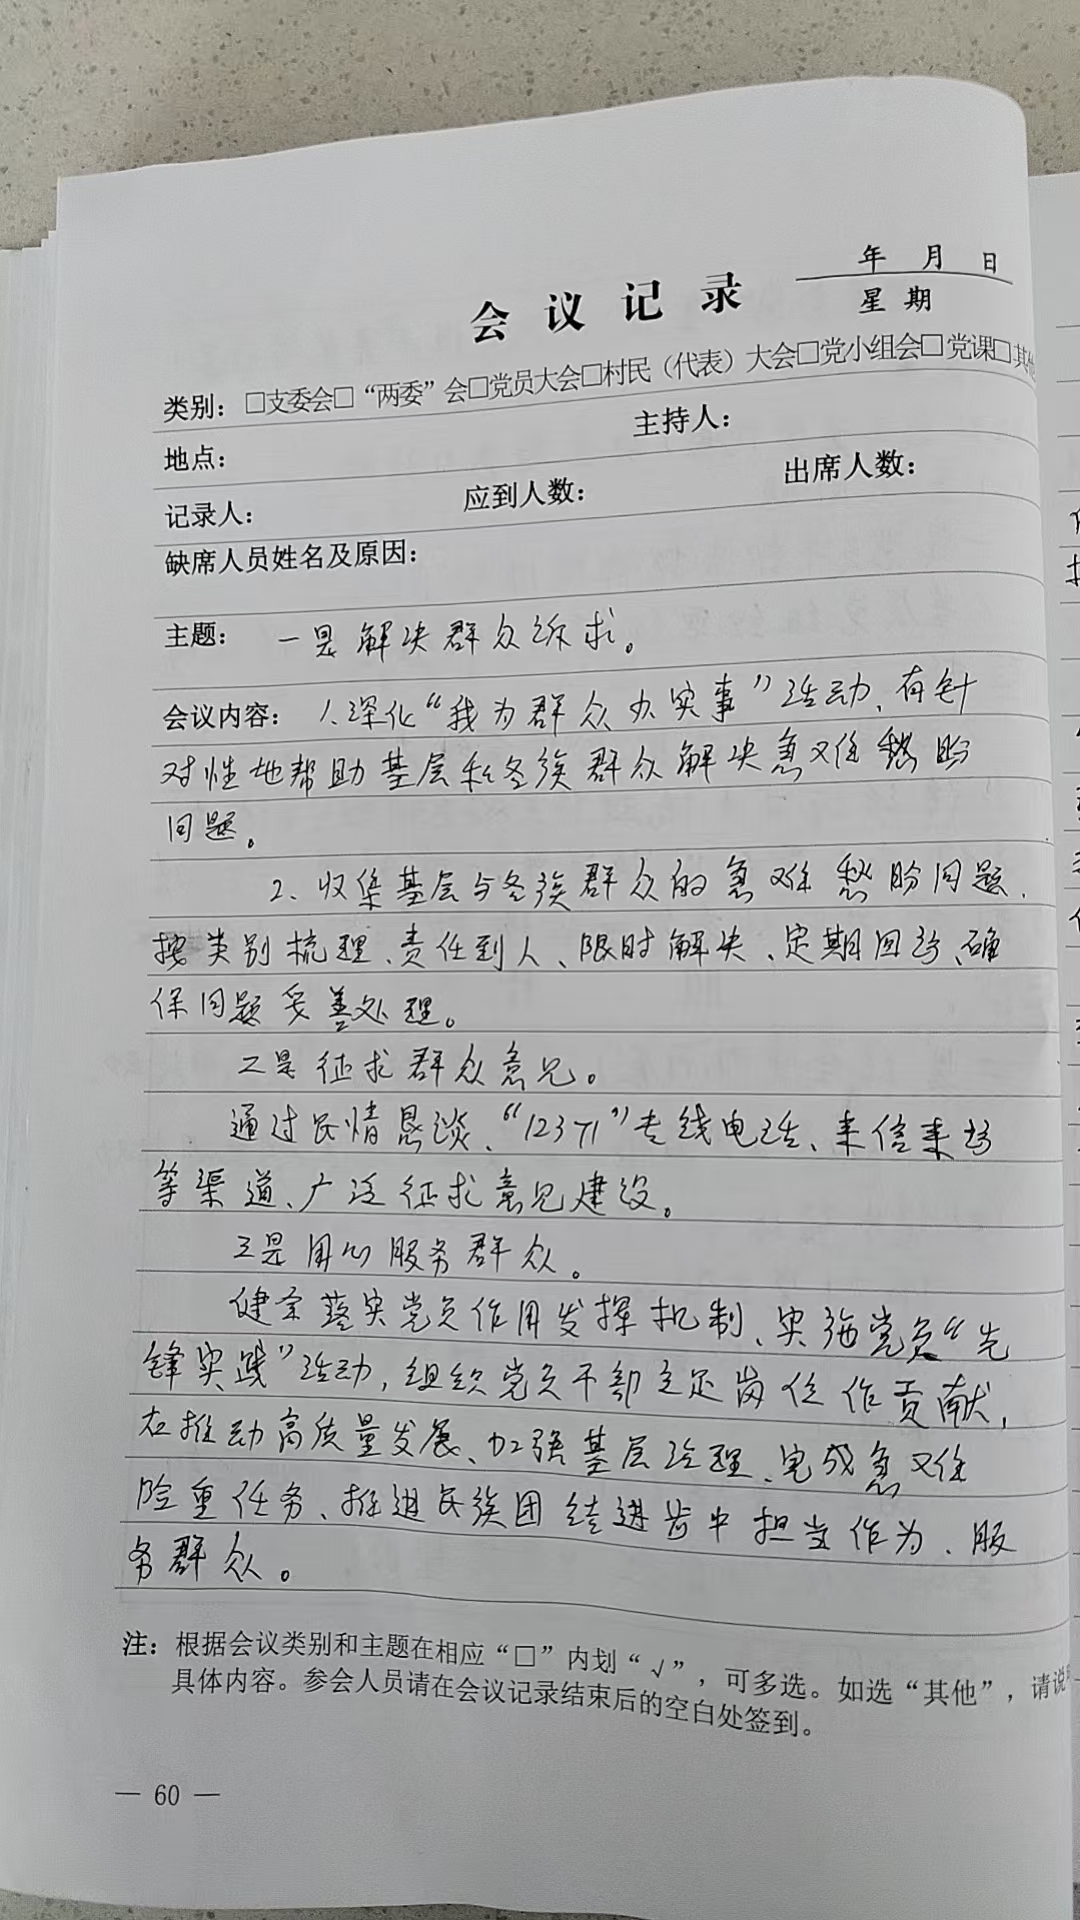 年 月 日
会议记录
星期
类别：□支委会□“两委”会□党员大会□村民（代表）大会□党小组会□党课□其他
地点：
主持人：
记录人：
应到人数：
出席人数：
缺席人员姓名及原因：
主题： 一是解决群众诉求。
会议内容： 1.深化“我为群众办实事”活动、有针
对性地帮助基层和各族群众解决急难愁盼
问题。
2、收集基层与各族群众的急难愁盼问题、
按类别梳理、责任到人、限时解决、定期回访、确
保问题妥善处理。
二是征求群众意见。
通过民情恳谈、“12371”专线电话、来信来访
等渠道、广泛征求意见建设。
三是用心服务群众。
健全落实党员作用发挥机制、实施党员“先
锋实践”活动，组织党员干部立足岗位作贡献，
在推动高质量发展、加强基层治理、完成急难
险重任务、推进民族团结进步中担当作为、服
务群众。
注：根据会议类别和主题在相应“□”内划“√”，可多选。如选“其他”，请说
具体内容。参会人员请在会议记录结束后的空白处签到。
— 60 —